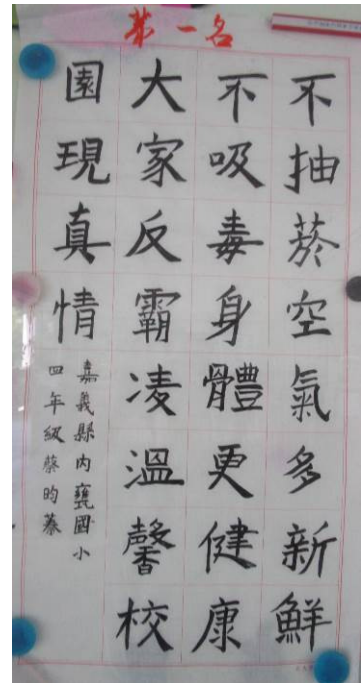 第一名
不抽菸空氣多新鮮
不吸毒身體更健康
大家反霸凌溫馨校
園現真情
嘉義縣內甕國小
四年級蔡昀蓁